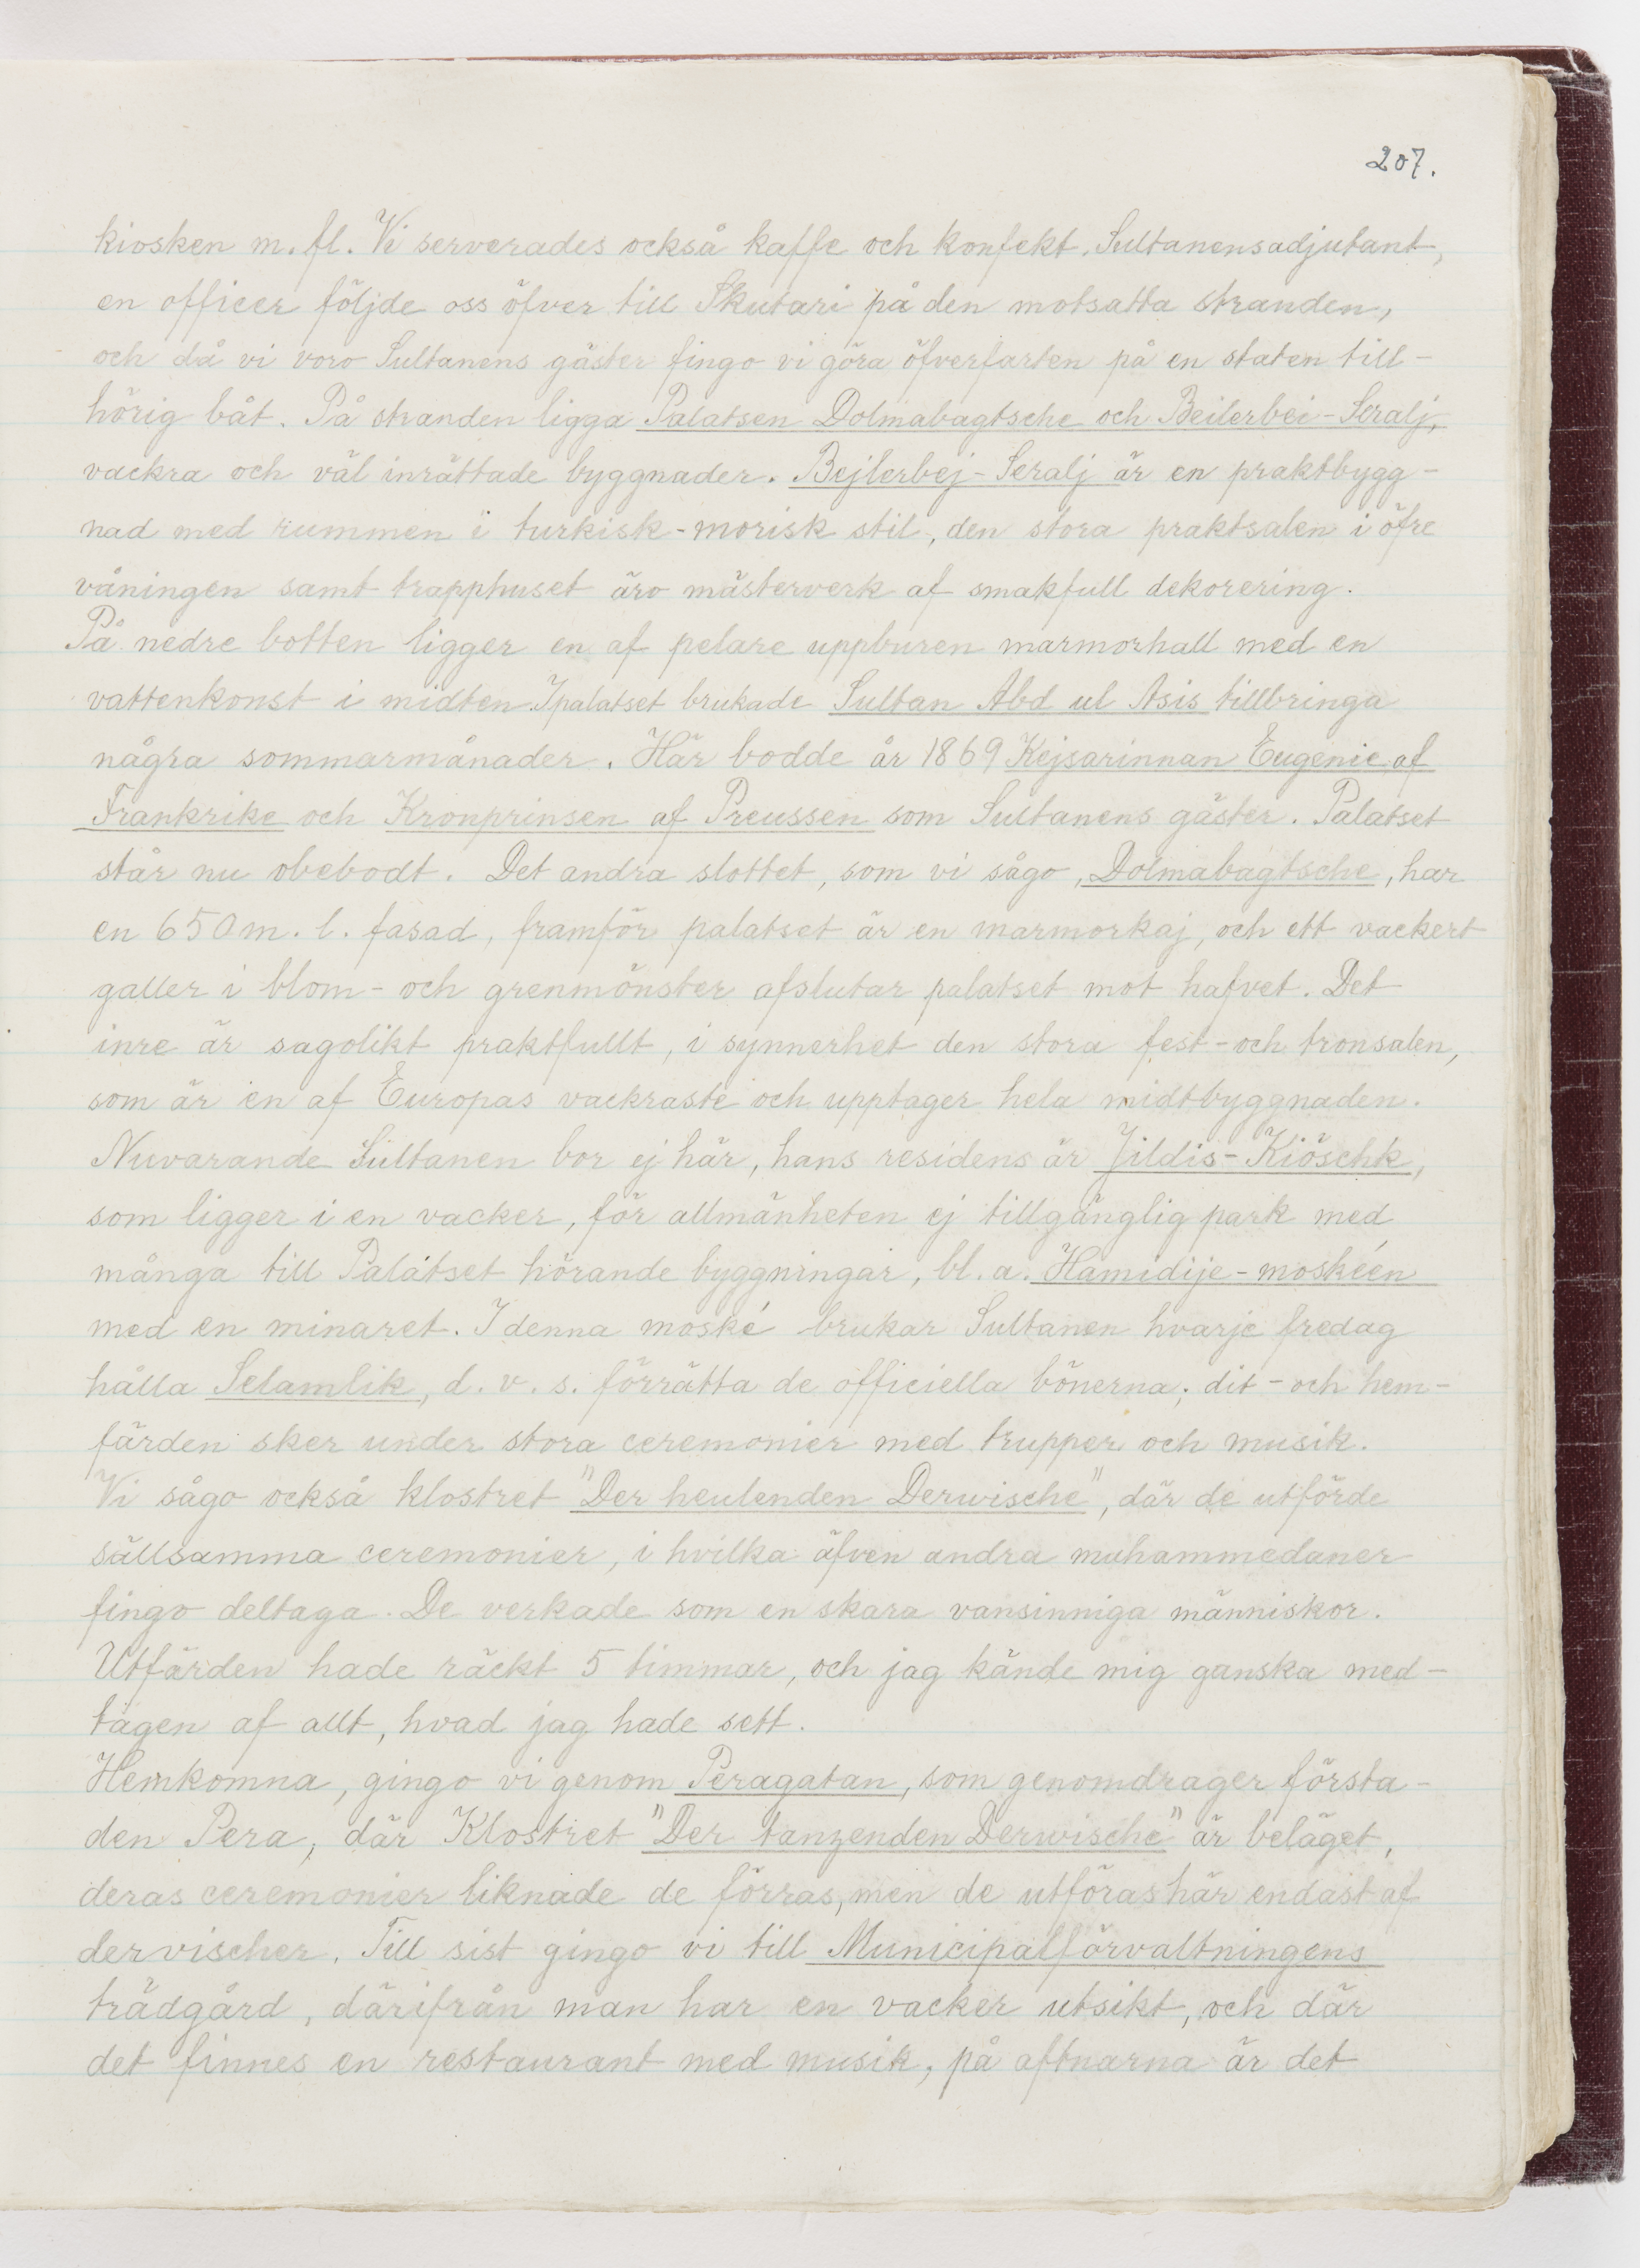 207.
kiosken m. fl. Vi serverades också kaffe och konfekt. Sultanens adjutant,
en officer följde oss öfver till Skutari på den motsatta stranden,
och då vi voro Sultanens gäster fingo vi göra öfverfarten på en staten till-
hörig båt. På stranden ligga Palatsen Dolmabagtsche och Beilerbei-Seralj,
vackra och väl inrättade byggnader. Bejlerbej-Seralj är en praktbygg-
nad med rummen i turkisk-morisk stil, den stora praktsalen i öfre
våningen samt trapphuset äro mästerverk af smakfull dekorering.
På nedre botten ligger en af pelare uppburen marmorhall med en
vattenkonst i midten. I palatset brukade Sultan Abd ul Asis tillbringa
några sommarmånader. Här bodde år 1869 Kejsarinnan Eugenie af
Frankrike och Kronprinsen af Preussen som Sultanens gäster. Palatset
står nu obebodt. Det andra slottet, som vi sågo, Dolmabagtsche, har
en 650 m. l. fasad, framför palatset är en marmorkaj, och ett vackert
galler i blom- och grenmönster afslutar palatset mot hafvet. Det
inre är sagolikt praktfullt, i synnerhet den stora fest- och tronsalen,
som är en af Europas vackraste och upptager hela midtbyggnaden.
Nuvarande Sultanen bor ej här, hans residens är Jildis-Kiöschk,
som ligger i en vacker, för allmänheten ej tillgänglig park med
många till Palatset hörande byggningar, bl. a. Hamidije-moskéen
med en minaret. I denna moské brukar Sultanen hvarje fredag
hålla Selamlik, d. v. s. förrätta de officiella bönerna; dit- och hem-
färden sker under stora ceremonier med trupper och musik.
Vi sågo också klostret "Der heulenden Derwische", där de utförde
sällsamma ceremonier, i hvilka äfven andra muhammedaner
fingo deltaga. De verkade som en skara vansinniga människor.
Utfärden hade räckt 5 timmar, och jag kände mig ganska med-
tagen af allt, hvad jag hade sett.
Hemkomna, gingo vi genom Peragatan, som genomdrager första-
den Pera, där Klostret "Der tanzenden Derwische" är beläget,
deras ceremonier liknade de förras, men de utföras här endast af
dervischer. Till sist gingo vi till Municipalförvaltningens
trädgård, därifrån man har en vacker utsikt, och där
det finnes en restaurant med musik, på aftnarna är det